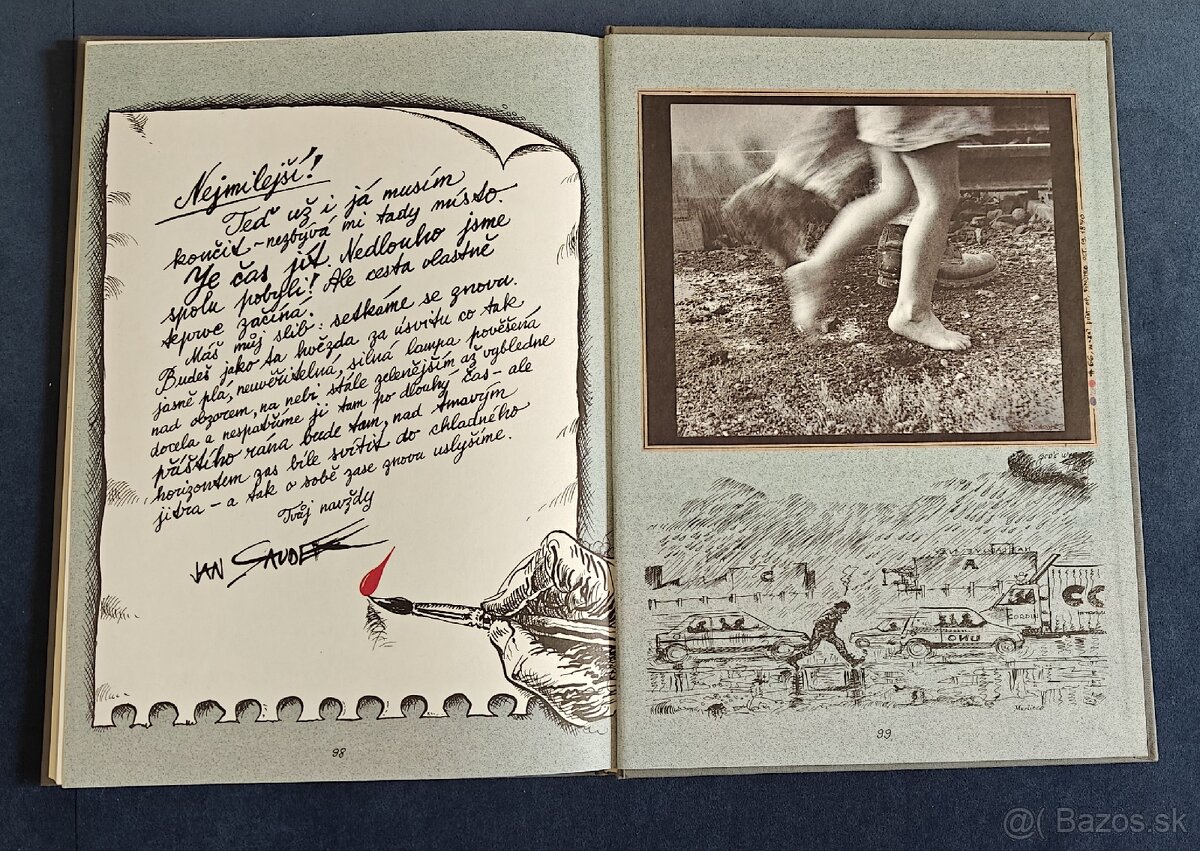 Nejmilejší!
Teď už i já musím
končit - nezbývá mi tady místo.
Je čas jít. Nedlouho jsme
spolu pobyli! Ale cesta vlastně
teprve začíná.
Máš můj slib: setkáme se znova.
Budeš jako ta hvězda za úsvitu co tak
jasně plá, neuvěřitelná, silná lampa pověšená
nad obzorem, na nebi stále zelenějším až vybledne
docela a nespatříme ji tam po dlouhý čas - ale
příštího rána bude tam, nad tmavým
horizontem zas bíle svítit do chladného
jitra - a tak o sobě zase znova uslyšíme.
Tvůj navždy
JAN SAUDEK
98
A
ONU
CORDI
CC
99
@( Bazos.sk